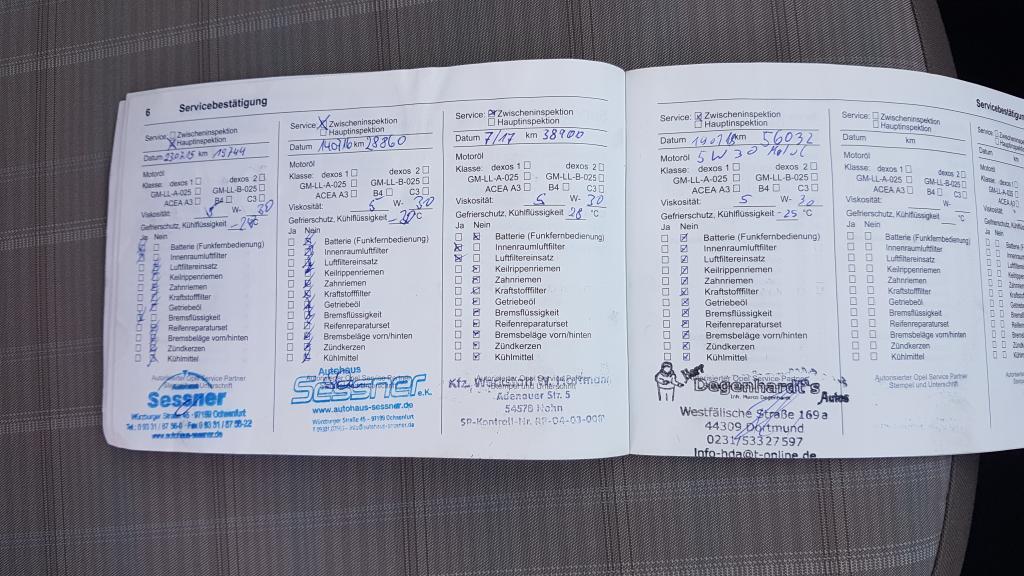 6 Servicebestätigung
Service: Zwischeninspektion
Hauptinspektion
Datum 230715 km 19744
Motoröl
Klasse: dexos 1 dexos 2
GM-LL-A-025 GM-LL-B-025
ACEA A3 B4 C3
Viskosität: 5 W- 30
Gefrierschutz, Kühlflüssigkeit -28 °C
Ja Nein
Batterie (Funkfernbedienung)
Innenraumluftfilter
Luftfiltereinsatz
Keilrippenriemen
Zahnriemen
Kraftstofffilter
Getriebeöl
Bremsflüssigkeit
Reifenreparaturset
Bremsbeläge vorn/hinten
Zündkerzen
Kühlmittel
Autohaus
Sessner
Würzburger Straße 45 - 97199 Ochsenfurt
Tel.: 0 93 31 / 87 56-0 · Fax 0 93 31 / 87 56-22
www.autohaus-sessner.de
Service: Zwischeninspektion
Hauptinspektion
Datum 140716 km 28860
Motoröl
Klasse: dexos 1 dexos 2
GM-LL-A-025 GM-LL-B-025
ACEA A3 B4 C3
Viskosität: 5 W- 30
Gefrierschutz, Kühlflüssigkeit -30 °C
Ja Nein
Batterie (Funkfernbedienung)
Innenraumluftfilter
Luftfiltereinsatz
Keilrippenriemen
Zahnriemen
Kraftstofffilter
Getriebeöl
Bremsflüssigkeit
Reifenreparaturset
Bremsbeläge vorn/hinten
Zündkerzen
Kühlmittel
Autohaus
Sessner e.K.
www.autohaus-sessner.de
Würzburger Straße 45 - 97199 Ochsenfurt
Service: Zwischeninspektion
Hauptinspektion
Datum 7/17 km 38900
Motoröl
Klasse: dexos 1 dexos 2
GM-LL-A-025 GM-LL-B-025
ACEA A3 B4 C3
Viskosität: 5 W- 30
Gefrierschutz, Kühlflüssigkeit 28 °C
Ja Nein
Batterie (Funkfernbedienung)
Innenraumluftfilter
Luftfiltereinsatz
Keilrippenriemen
Zahnriemen
Kraftstofffilter
Getriebeöl
Bremsflüssigkeit
Reifenreparaturset
Bremsbeläge vorn/hinten
Zündkerzen
Kühlmittel
Kfz. Werkstatt W.
Adenauer Str. 5
54578 Nohn
SP-Kontroll-Nr. RP-04-03-0
Servicebestätigung
Service: Zwischeninspektion
Hauptinspektion
Datum 190718 km 56032
Motoröl 5W30 Motul
Klasse: dexos 1 dexos 2
GM-LL-A-025 GM-LL-B-025
ACEA A3 B4 C3
Viskosität: 5 W- 30
Gefrierschutz, Kühlflüssigkeit -25 °C
Ja Nein
Batterie (Funkfernbedienung)
Innenraumluftfilter
Luftfiltereinsatz
Keilrippenriemen
Zahnriemen
Kraftstofffilter
Getriebeöl
Bremsflüssigkeit
Reifenreparaturset
Bremsbeläge vorn/hinten
Zündkerzen
Kühlmittel
Herr
Degenhardt's
Autos
Inh. Marco Degenhardt
Westfälische Straße 169a
44309 Dortmund
0231/53327597
Info-hda@t-online.de
Service: Zwischeninspektion
Hauptinspektion
Datum km
Motoröl
Klasse: dexos 1 dexos 2
GM-LL-A-025 GM-LL-B-025
ACEA A3 B4 C3
Viskosität: W-
Gefrierschutz, Kühlflüssigkeit °C
Ja Nein
Batterie (Funkfernbedienung)
Innenraumluftfilter
Luftfiltereinsatz
Keilrippenriemen
Zahnriemen
Kraftstofffilter
Getriebeöl
Bremsflüssigkeit
Reifenreparaturset
Bremsbeläge vorn/hinten
Zündkerzen
Kühlmittel
Autorisierter Opel Service Partner
Stempel und Unterschrift
Service:
Datum
Motoröl
Klasse:
Viskosität:
Ja Nein